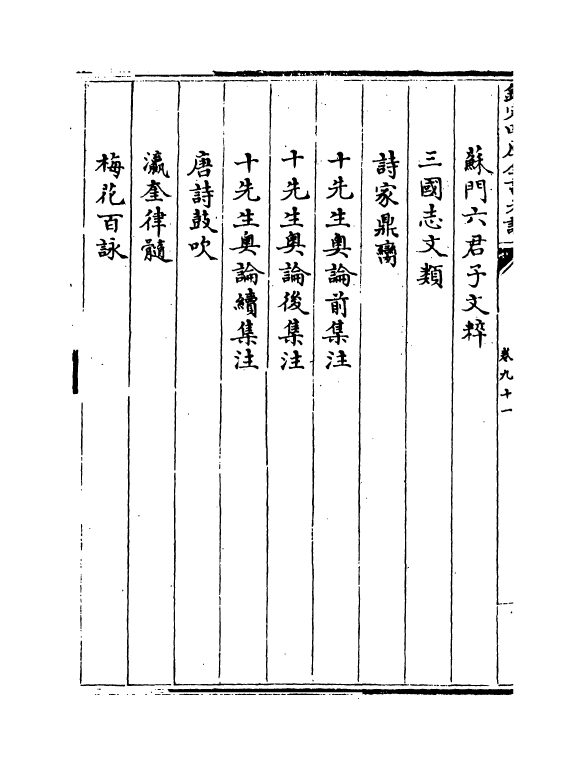 蘇門六君子文粹
三國志文類
詩家鼎臠
十先生奧論前集注
十先生奧論後集注
十先生奧論續集注
唐詩鼓吹
瀛奎律髓
梅花百詠
卷九十一